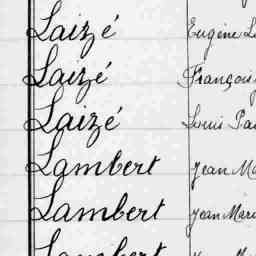 Laizé Eugène
Laizé François
Laizé Louis
Lambert Jean
Lambert Jean
Lambert